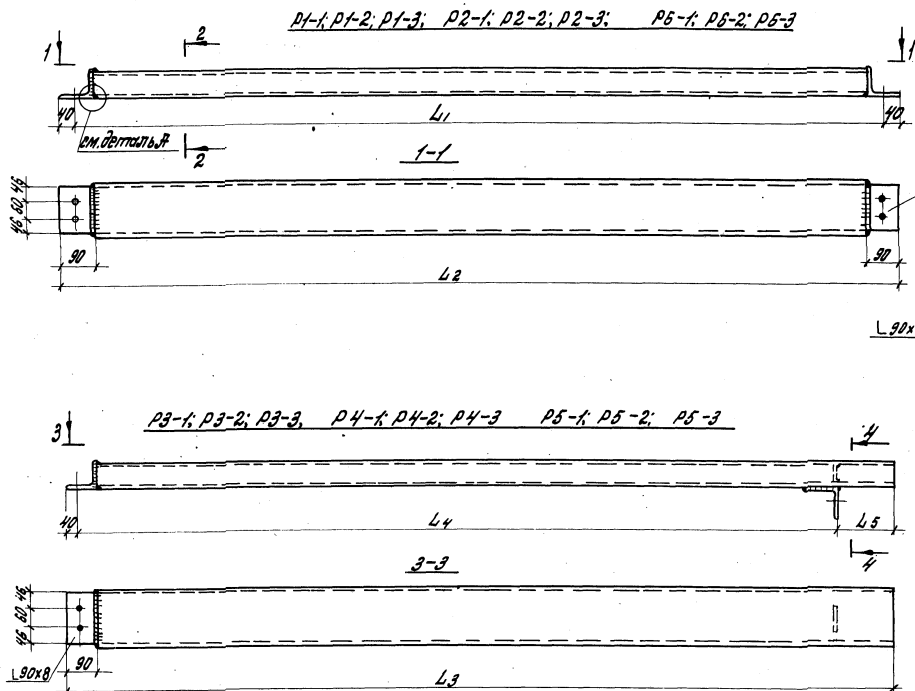 Р1-1; Р1-2; Р1-3; Р2-1; Р2-2; Р2-3; Р6-1; Р6-2; Р6-3
1 2 1
40 L1 40
см. деталь А
2
1-1
46 60 46
90 90
L2
L 90x
Р3-1; Р3-2; Р3-3, Р4-1; Р4-2; Р4-3 Р5-1; Р5-2; Р5-3
3 4
40 L4 L5
4
3-3
46 60 46
L90x8 90
L3